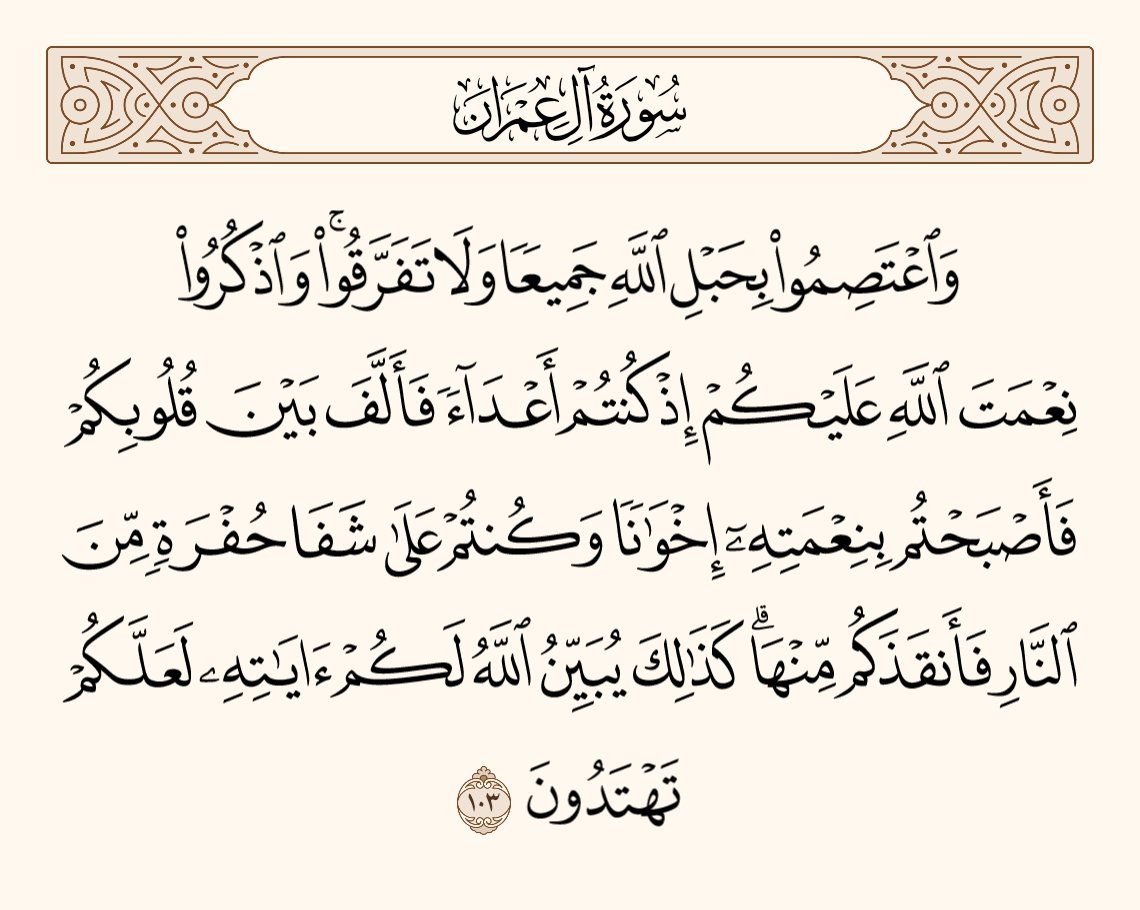 سُورَةُ آلِ عِمْرَانَ
وَٱعْتَصِمُوا۟ بِحَبْلِ ٱللَّهِ جَمِيعًا وَلَا تَفَرَّقُوا۟ ۚ وَٱذْكُرُوا۟
نِعْمَتَ ٱللَّهِ عَلَيْكُمْ إِذْ كُنتُمْ أَعْدَآءً فَأَلَّفَ بَيْنَ قُلُوبِكُمْ
فَأَصْبَحْتُم بِنِعْمَتِهِۦٓ إِخْوَٰنًا وَكُنتُمْ عَلَىٰ شَفَا حُفْرَةٍ مِّنَ
ٱلنَّارِ فَأَنقَذَكُم مِّنْهَا ۗ كَذَٰلِكَ يُبَيِّنُ ٱللَّهُ لَكُمْ ءَايَـٰتِهِۦ لَعَلَّكُمْ
تَهْتَدُونَ ١٠٣